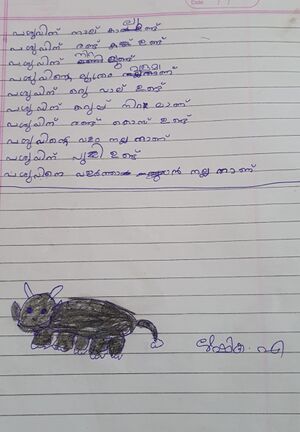 പശുവിന് നാല് കാലുണ്ട്
പശുവിന് രണ്ട് കണ്ണ് ഉണ്ട്
പശുവിന് നിറം ഉണ്ട്
പശുവിന്റെ മൂത്രം നല്ലതാണ്
പശുവിന് ഒരു വാല് ഉണ്ട്
പശുവിന് കറുപ്പ് നിറമാണ്
പശുവിന് രണ്ട് കൊമ്പ് ഉണ്ട്
പശുവിന്റെ വളം നല്ലതാണ്
പശുവിന് പൂഞ്ഞി ഉണ്ട്
പശുവിനെ വളർത്താൻ നല്ലതാണ്